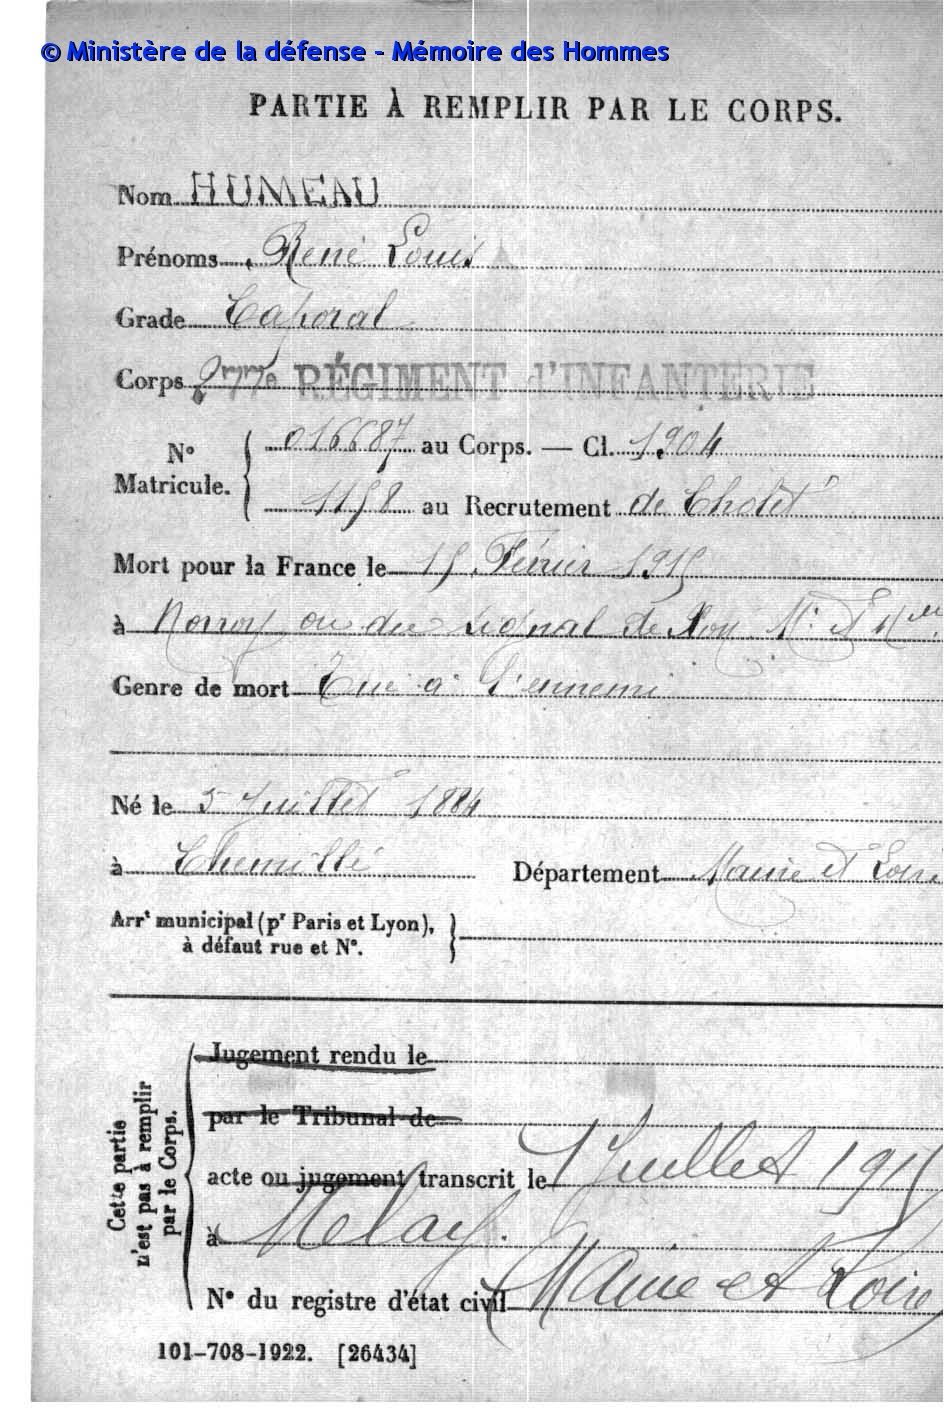 © Ministère de la défense - Mémoire des Hommes
PARTIE À REMPLIR PAR LE CORPS.
Nom HUMEAU
Prénoms René Louis
Grade Caporal
Corps 277e RÉGIMENT d'INFANTERIE
N° Matricule. 016687 au Corps. — Cl. 1904
1158 au Recrutement de Cholet
Mort pour la France le 15 Février 1915
à Norroy ou du Signal de Xon Mthe et Mlle
Genre de mort Tué à l'ennemi
Né le 5 Juillet 1884
à Chemillé Département Maine et Loire
Arrt municipal (pr Paris et Lyon),
à défaut rue et N°.
Cette partie n'est pas à remplir par le Corps.
Jugement rendu le
par le Tribunal de
acte ou jugement transcrit le 1 Juillet 1915
à Melay.
N° du registre d'état civil Maine et Loire
101-708-1922. [26434]